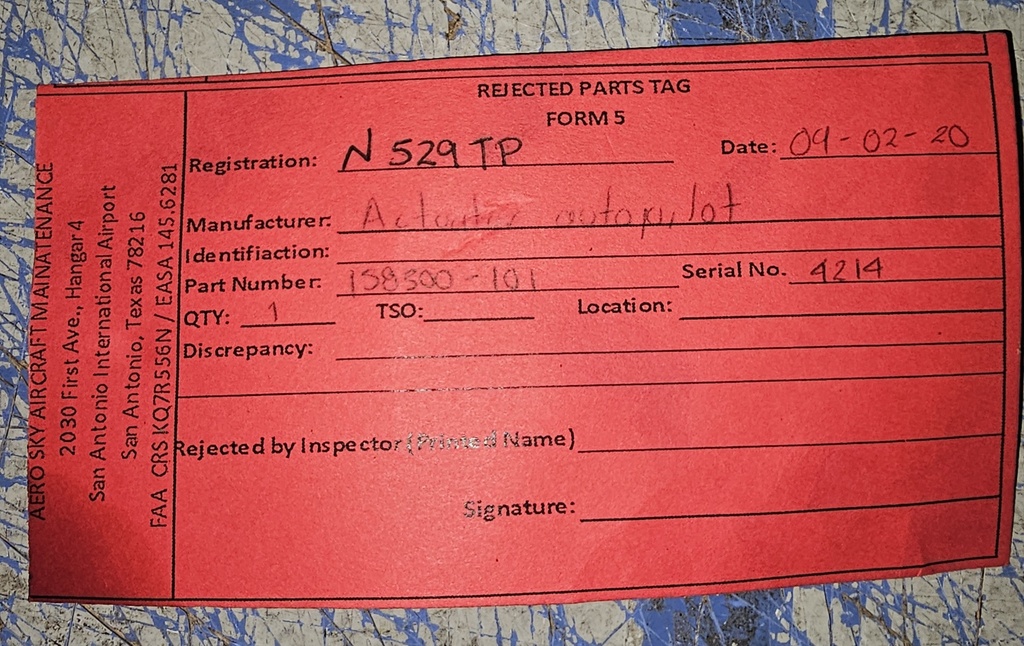 AERO SKY AIRCRAFT MAINATENANCE
2030 First Ave., Hangar 4
San Antonio International Airport
San Antonio, Texas 78216
FAA CRS KQ7R556N / EASA 145.6281
REJECTED PARTS TAG
FORM 5
Registration: N529TP Date: 09-02-20
Manufacturer: autopilot
Identifiaction:
Part Number: 158300-101 Serial No. 4214
QTY: 1 TSO: Location:
Discrepancy:
Rejected by Inspector (Printed Name)
Signature: